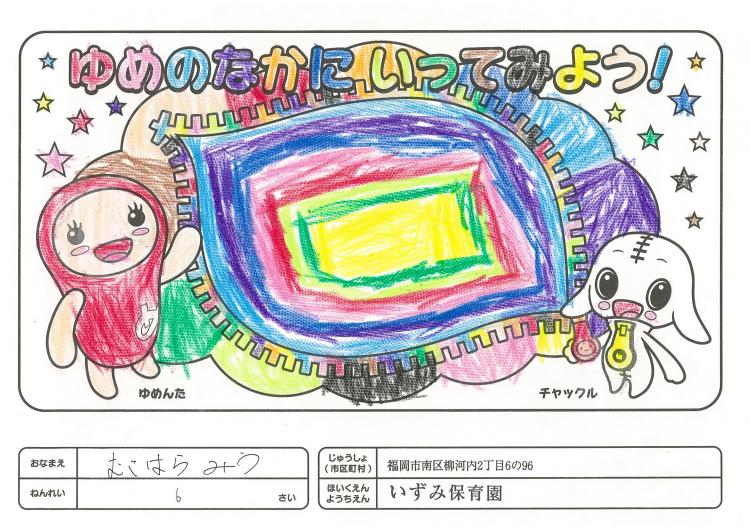 ゆめのなかにいってみよう!
ゆめんた
チャックル
おなまえ むこはら みう
ねんれい 6 さい
じゅうしょ(市区町村) 福岡市南区柳河内2丁目6の96
ほいくえん ようちえん いずみ保育園